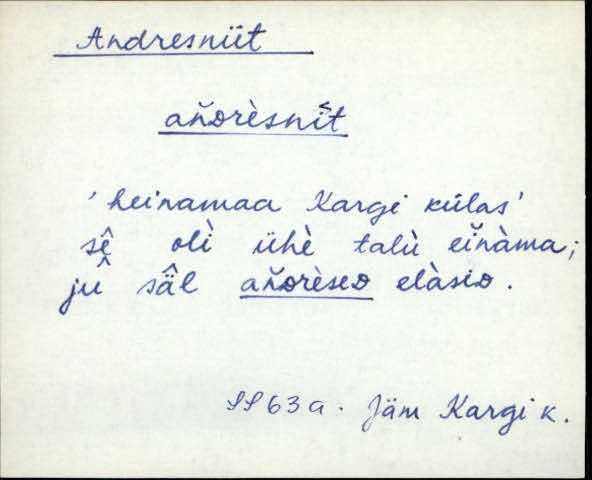 Andresniit
an̆ᴅrèsnît
'heinamaa Kargi külas'
sê̬ olì ühè talù ein̆àma;
jû sä̂l an̆ᴅrèseᴅ elàsiᴅ.
SS 63 a. Jäm Kargi k.